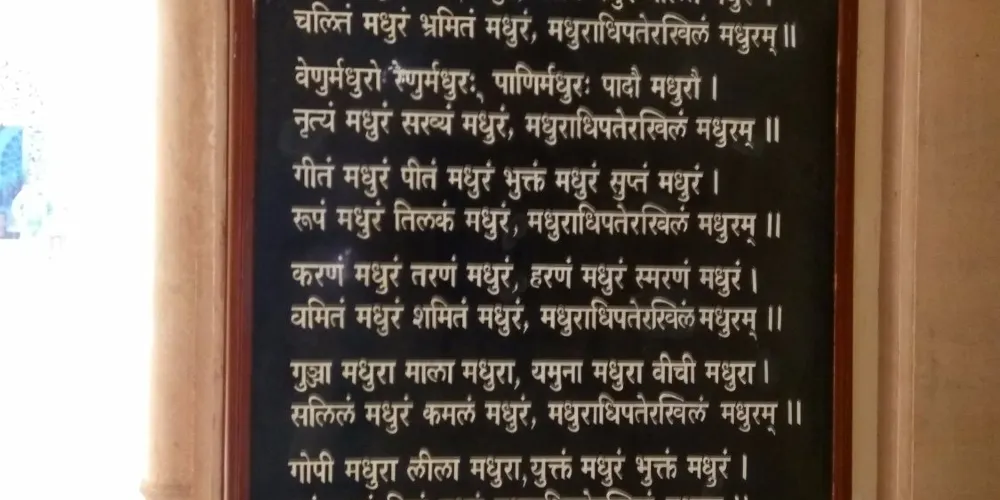 चलितं मधुरं भ्रमितं मधुरं, मधुराधिपतेरखिलं मधुरम् ॥
वेणुर्मधुरो रेणुर्मधुरः, पाणिर्मधुरः पादौ मधुरौ ।
नृत्यं मधुरं सख्यं मधुरं, मधुराधिपतेरखिलं मधुरम् ॥
गीतं मधुरं पीतं मधुरं भुक्तं मधुरं सुप्तं मधुरं ।
रूपं मधुरं तिलकं मधुरं, मधुराधिपतेरखिलं मधुरम् ॥
करणं मधुरं तरणं मधुरं, हरणं मधुरं स्मरणं मधुरं ।
वमितं मधुरं शमितं मधुरं, मधुराधिपतेरखिलं मधुरम् ॥
गुञ्जा मधुरा माला मधुरा, यमुना मधुरा वीची मधुरा ।
सलिलं मधुरं कमलं मधुरं, मधुराधिपतेरखिलं मधुरम् ॥
गोपी मधुरा लीला मधुरा, युक्तं मधुरं भुक्तं मधुरं ।